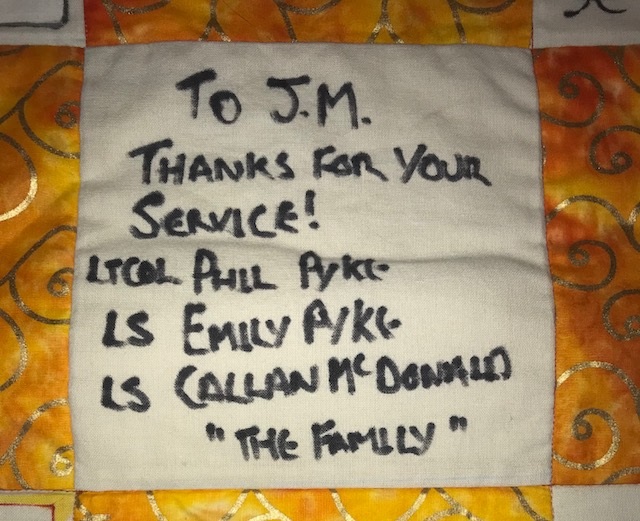 To J.M.
THANKS FOR YOUR
SERVICE!
LTCOL PHIL PYKE
LS EMILY PYKE
LS CALLAN McDONALD
"THE FAMILY"